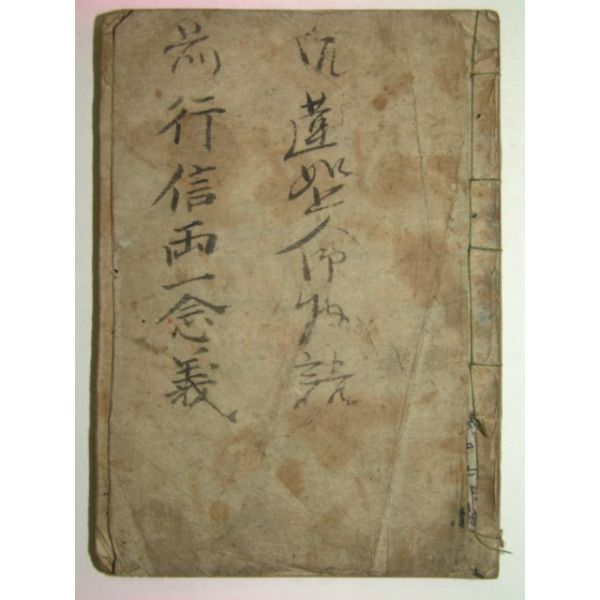 蓮如上人御物語
前行信両一念義